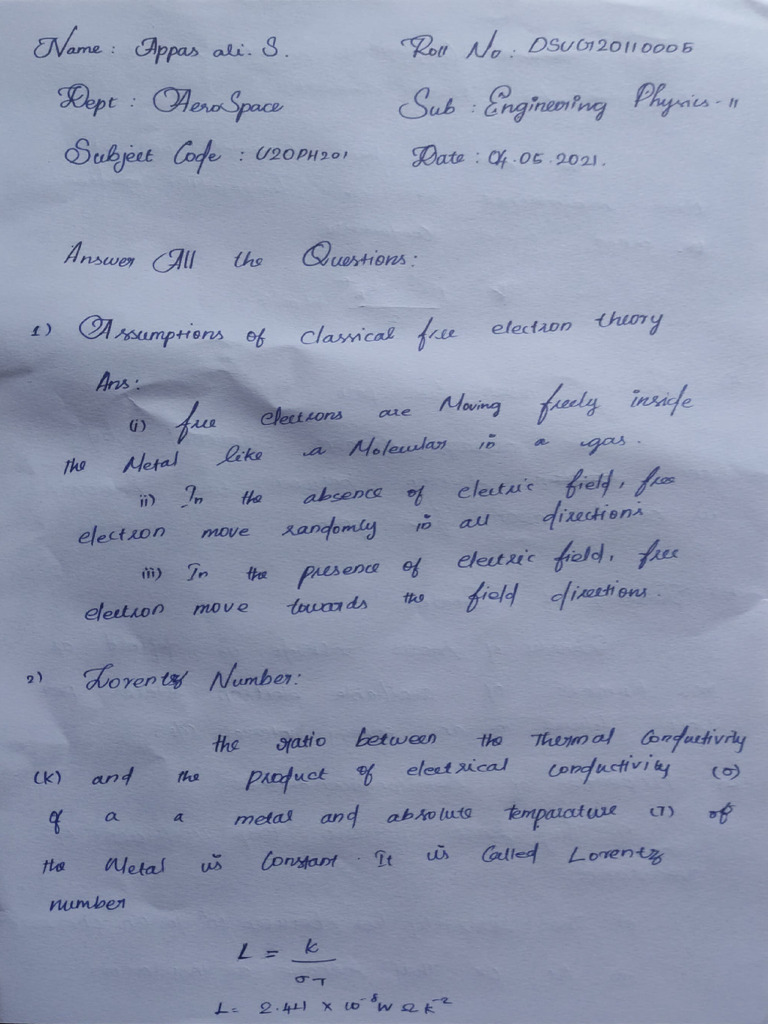 Name : Appas ali. S. Roll No : DSUG120110005
Dept : AeroSpace Sub : Engineering Physics - II
Subject Code : U20PH201 Date : 04.05.2021.
Answer All the Questions:
1) Assumptions of Classical free electron theory
Ans:
(i) free electrons are Moving freely inside
the Metal like a Molecular in a gas.
ii) In the absence of electric field, free
electron move randomly in all directions
iii) In the presence of electric field, free
electron move towards the field directions.
2) Lorentz Number:
the ratio between the Thermal Conductivity
(K) and the product of electrical conductivity (σ)
of a a metal and absolute temparature (T) of
the Metal is Constant. It is Called Lorentz
number
L = K
σT
L = 2.44 × 10⁻⁸ W Ω K⁻²